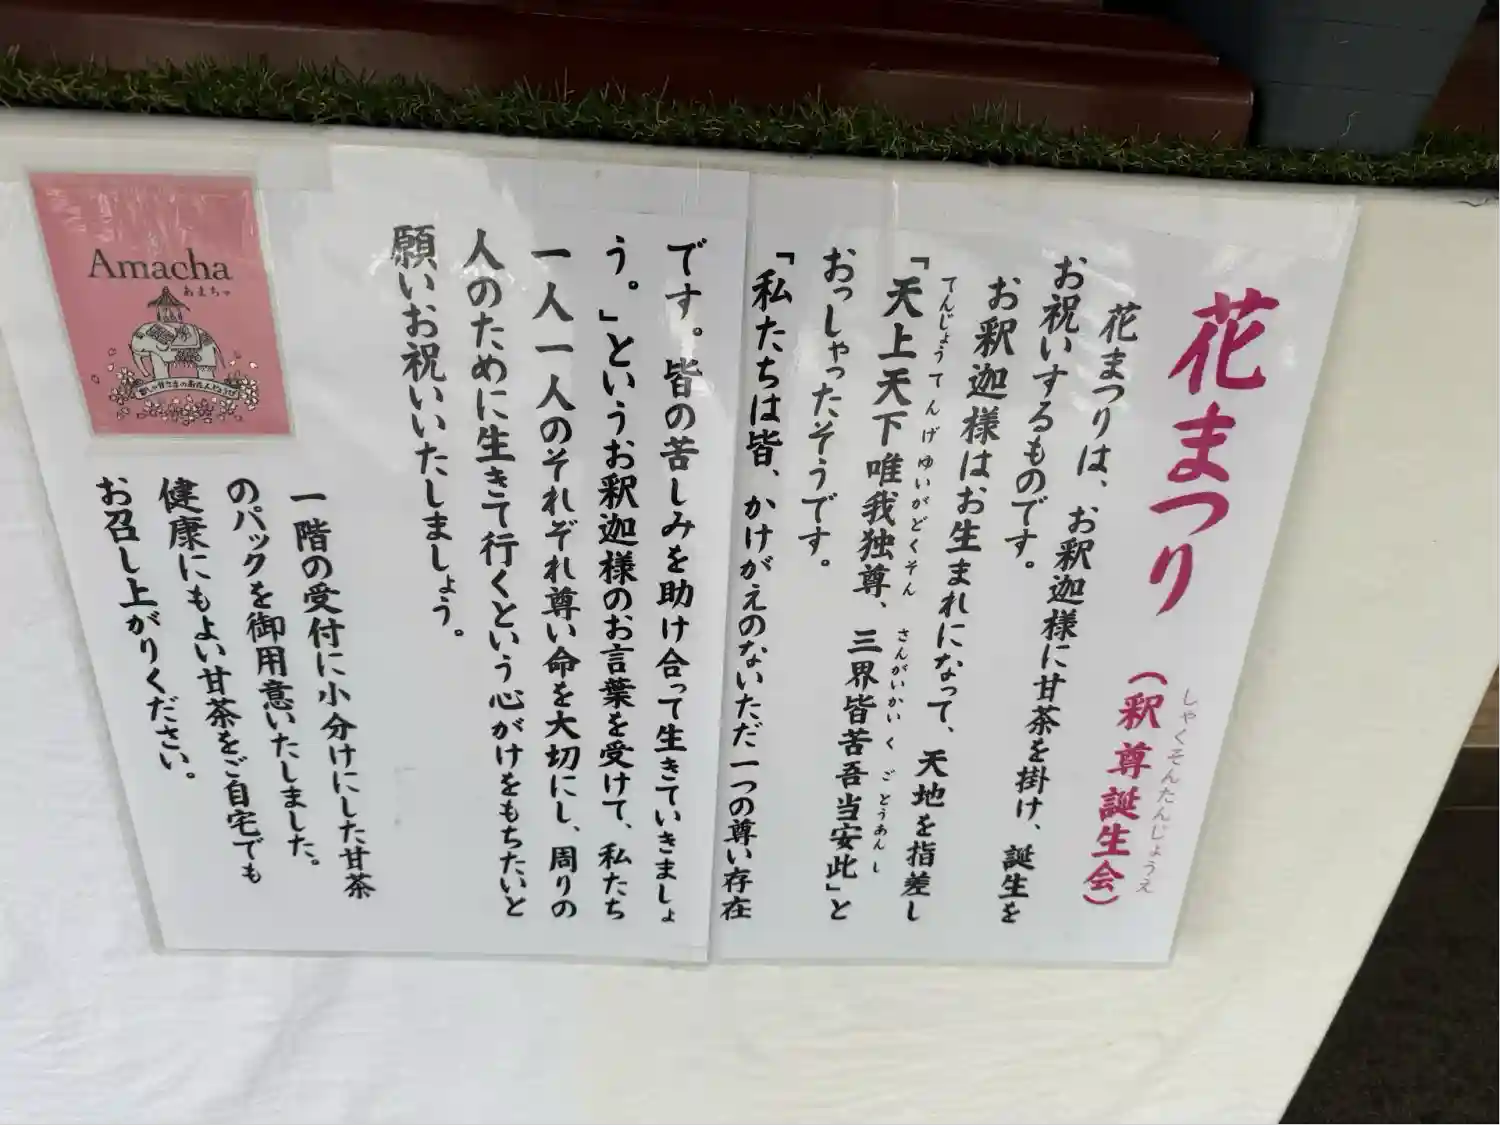 花まつり
(釈尊誕生会)
しゃくそんたんじょうえ
花まつりは、お釈迦様に甘茶を掛け、誕生を
お祝いするものです。
お釈迦様はお生まれになって、天地を指差し
てんじょうてんげゆいがどくそん
さんがいかいくごとうあんし
「天上天下唯我独尊、三界皆苦吾当安此」と
おっしゃったそうです。
「私たちは皆、かけがえのないただ一つの尊い存在
です。皆の苦しみを助け合って生きていきましょ
う。」というお釈迦様のお言葉を受けて、私たち
一人一人のそれぞれ尊い命を大切にし、周りの
人のために生きて行くという心がけをもちたいと
願いお祝いいたしましょう。
一階の受付に小分けにした甘茶
のパックを御用意いたしました。
健康にもよい甘茶をご自宅でも
お召し上がりください。
Amacha
あまちゃ